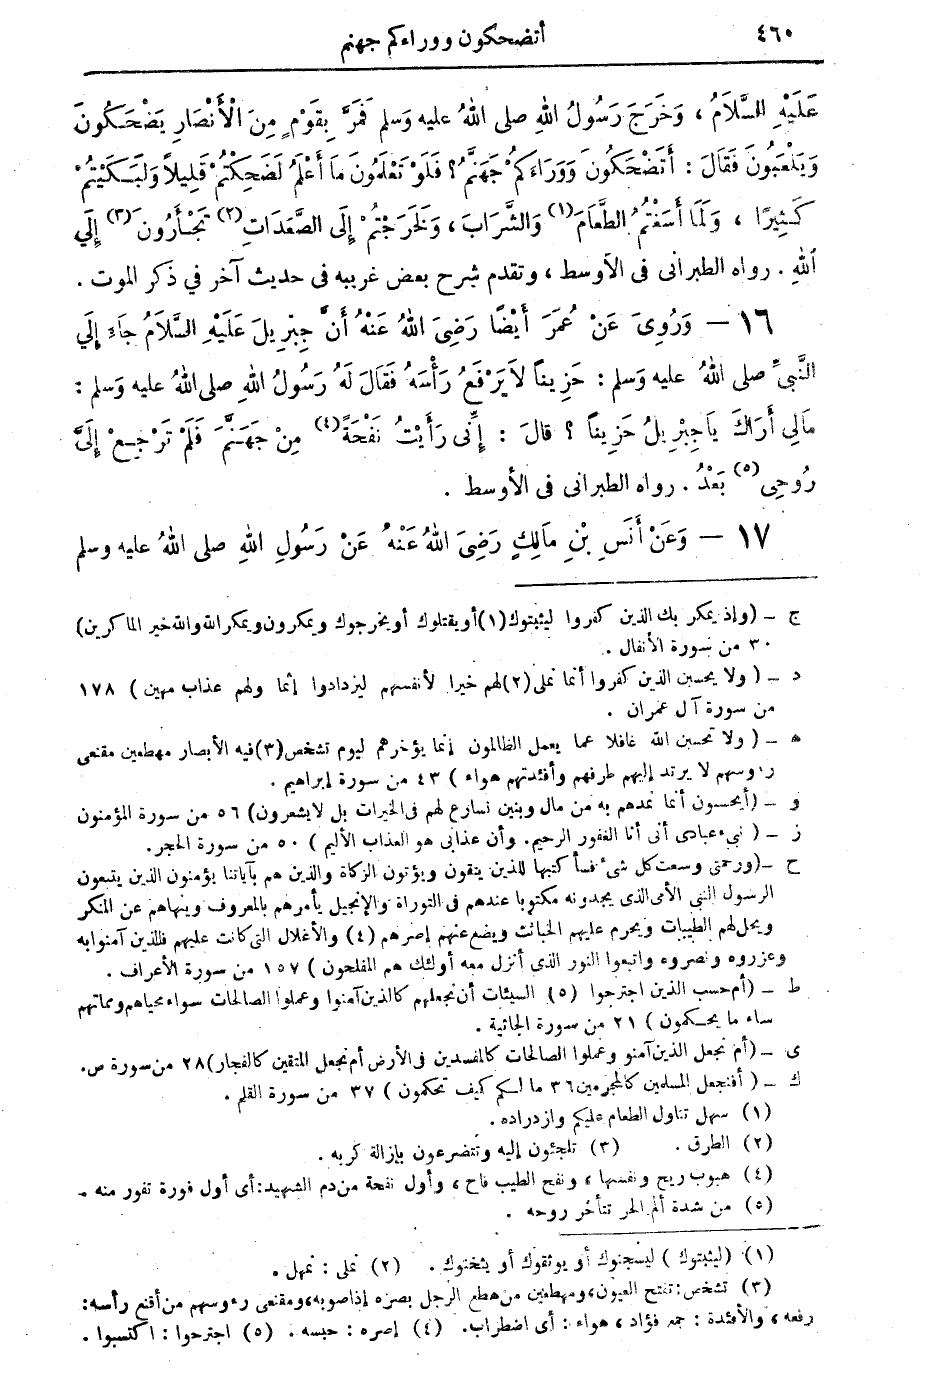 ٤٦٠ أتضحكون ووراءكم جهنم
عَلَيْهِ السَّلَامُ ، وَخَرَجَ رَسُولُ اللهِ صلى اللهُ عليه وَسلم فَمَرَّ بِقَوْمٍ مِنَ الْأَنْصَارِ يَضْحَكُونَ
وَيَلْعَبُونَ فَقَالَ : أَتَضْحَكُونَ وَوَرَاءَكُمْ جَهَنَّمُ ؟ فَلَوْ تَعْلَمُونَ مَا أَعْلَمُ لَضَحِكْتُمْ قَلِيلاً وَلَبَكَيْتُمْ
كَثِيرًا ، وَلَمَا أَسَغْتُمُ الطَّعَامَ (١) وَالشَّرَابَ ، وَلَخَرَجْتُمْ إِلَى الصُّعُدَاتِ (٢) تَجْأَرُونَ (٣) إِلَي
اللهِ . رواه الطبرانى فى الأوسط ، وتقدم شرح بعض غريبه فى حديث آخر في ذكر الموت .
١٦ — وَرُوِىَ عَنْ عُمَرَ أَيْضًا رَضِىَ اللهُ عَنْهُ أَنَّ جِبْرِيلَ عَلَيْهِ السَّلَامُ جَاءَ إِلَي
النَّبِيِّ صلى اللهُ عليه وَسلم : حَزِيناً لَا يَرْفَعُ رَأْسَهُ فَقَالَ لَهُ رَسُولُ اللهِ صلى اللهُ عليه وَسلم :
مَالِى أَرَاكَ يَا جِبْرِيلُ حَزِيناً ؟ قالَ : إِنِّى رَأَيْتُ نَفْحَةً (٤) مِنْ جَهَنَّمَ فَلَمْ تَرْجِعْ إِلَىَّ
رُوحِى (٥) بَعْدُ . رواه الطبرانى فى الأوسط .
١٧ — وَعَنْ أَنَسِ بْنِ مَالِكٍ رَضِىَ اللهُ عَنْهُ عَنْ رَسُولِ اللهِ صلى اللهُ عليه وسلم
ج – (وإذ يمكر بك الذين كفروا ليثبتوك(١) أو يقتلوك أو يخرجوك ويمكرون ويمكر الله والله خير الماكرين)
٣٠ من سورة الأنفال .
د – ( ولا يحسبن الذين كفروا أنما نملى (٢) لهم خيرا لأنفسهم ليزدادوا إثما ولهم عذاب مهين ) ١٧٨
من سورة آل عمران .
ه – ( ولا تحسبن الله غافلا عما يعمل الظالمون إنما يؤخرهم ليوم تشخص (٣) فيه الأبصار مهطعين مقنعى
رءوسهم لا يرتد إليهم طرفهم وأفئدتهم هواء ) ٤٣ من سورة إبراهيم .
و – (أيحسبون أنما نمدهم به من مال وبنين نسارع لهم فى الخيرات بل لا يشعرون) ٥٦ من سورة المؤمنون
ز – ( نبىء عبادى أنى أنا الغفور الرحيم. وأن عذابى هو العذاب الأليم ) ٥٠ من سورة الحجر.
ح – (ورحمتى وسعت كل شىء فسأكتبها للذين يتقون ويؤتون الزكاة والذين هم بآياتنا يؤمنون الذين يتبعون
الرسول النبى الأمى الذى يجدونه مكتوبا عندهم فى التوراة والإنجيل يأمرهم بالمعروف وينهاهم عن المنكر
ويحل لهم الطيبات ويحرم عليهم الخبائث ويضع عنهم إصرهم (٤) والأغلال التى كانت عليهم فالذين آمنوا به
وعزروه ونصروه واتبعوا النور الذى أنزل معه أولئك هم المفلحون ) ١٥٧ من سورة الأعراف .
ط – (أم حسب الذين اجترحوا (٥) السيئات أن نجعلهم كالذين آمنوا وعملوا الصالحات سواء محياهم ومماتهم
ساء ما يحكمون ) ٢١ من سورة الجاثية .
ى – (أم نجعل الذين آمنو وعملوا الصالحات كالمفسدين فى الأرض أم نجعل المتقين كالفجار) ٢٨ من سورة ص.
ك – ( أفنجعل المسلمين كالمجرمين ٣٦ ما لكم كيف تحكمون ) ٣٧ من سورة القلم .
(١) سهل تناول الطعام عليكم وازدراده .
(٢) الطرق . (٣) تلجئون إليه وتتضرعون بإزالة كربه .
(٤) هبوب ريح ونفسها ، ونفح الطيب فاح ، وأول نفحة من دم الشهيد: أى أول فورة تفور منه –
(٥) من شدة ألم الحر تتأخر روحه .
(١) (ليثبتوك ) ليسجنوك أو يوثقوك أو يثخنوك . (٢) نملى : نمهل .
(٣) تشخص: تفتح العيون، ومهطعين من هطع الرجل بصره إذا صوبه، ومقنعى رءوسهم من أقنع رأسه:
رفعه ، والأفئدة : جمع فؤاد ، هواء : أى اضطراب. (٤) إصره : حبسه . (٥) اجترحوا : اكتسبوا .